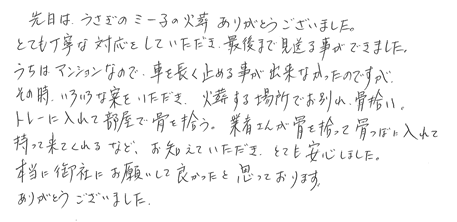 先日は、うさぎのミー子の火葬 ありがとうございました。
とても丁寧な対応をしていただき、最後まで見送る事ができました。
うちはマンションなので、車を長く止める事が出来なかったのですが、
その時、いろいろな案をいただき、火葬する場所でお別れ、骨拾い。
トレーに入れて部屋で骨を拾う。業者さんが骨を拾って骨つぼに入れて
持って来てくれるなど、お知えていただき、とても安心しました。
本当に御社にお願いして良かったと思っております。
ありがとうございました。